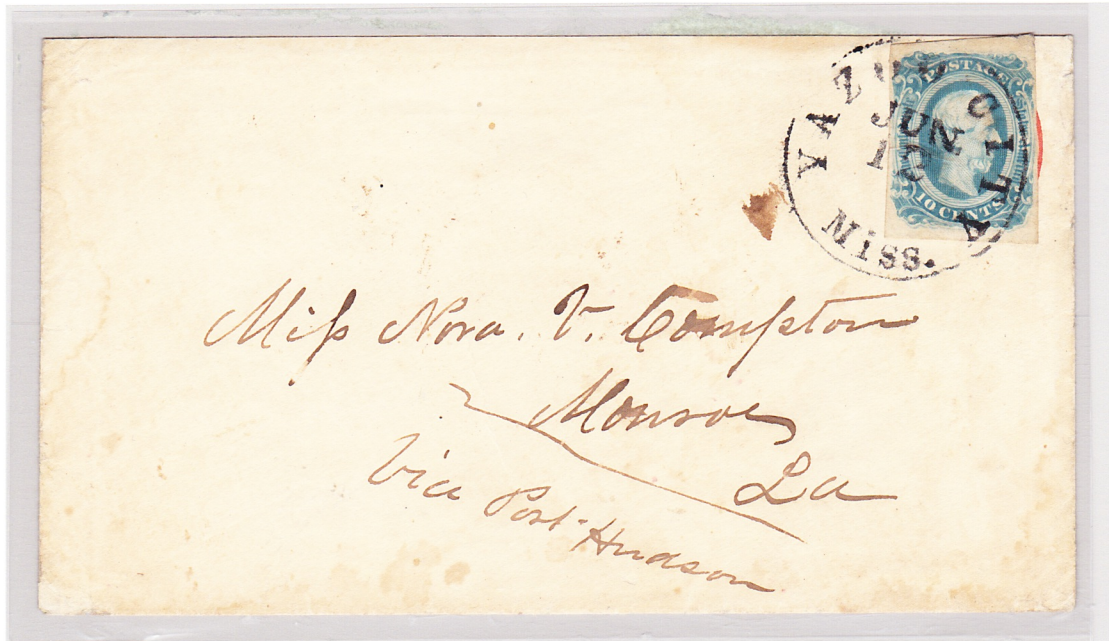 YAZOO CITY
JUN
MISS.
POSTAGE
10 CENTS
Miſs Nora. V. Compton
Monroe
La
Via Port Hudson